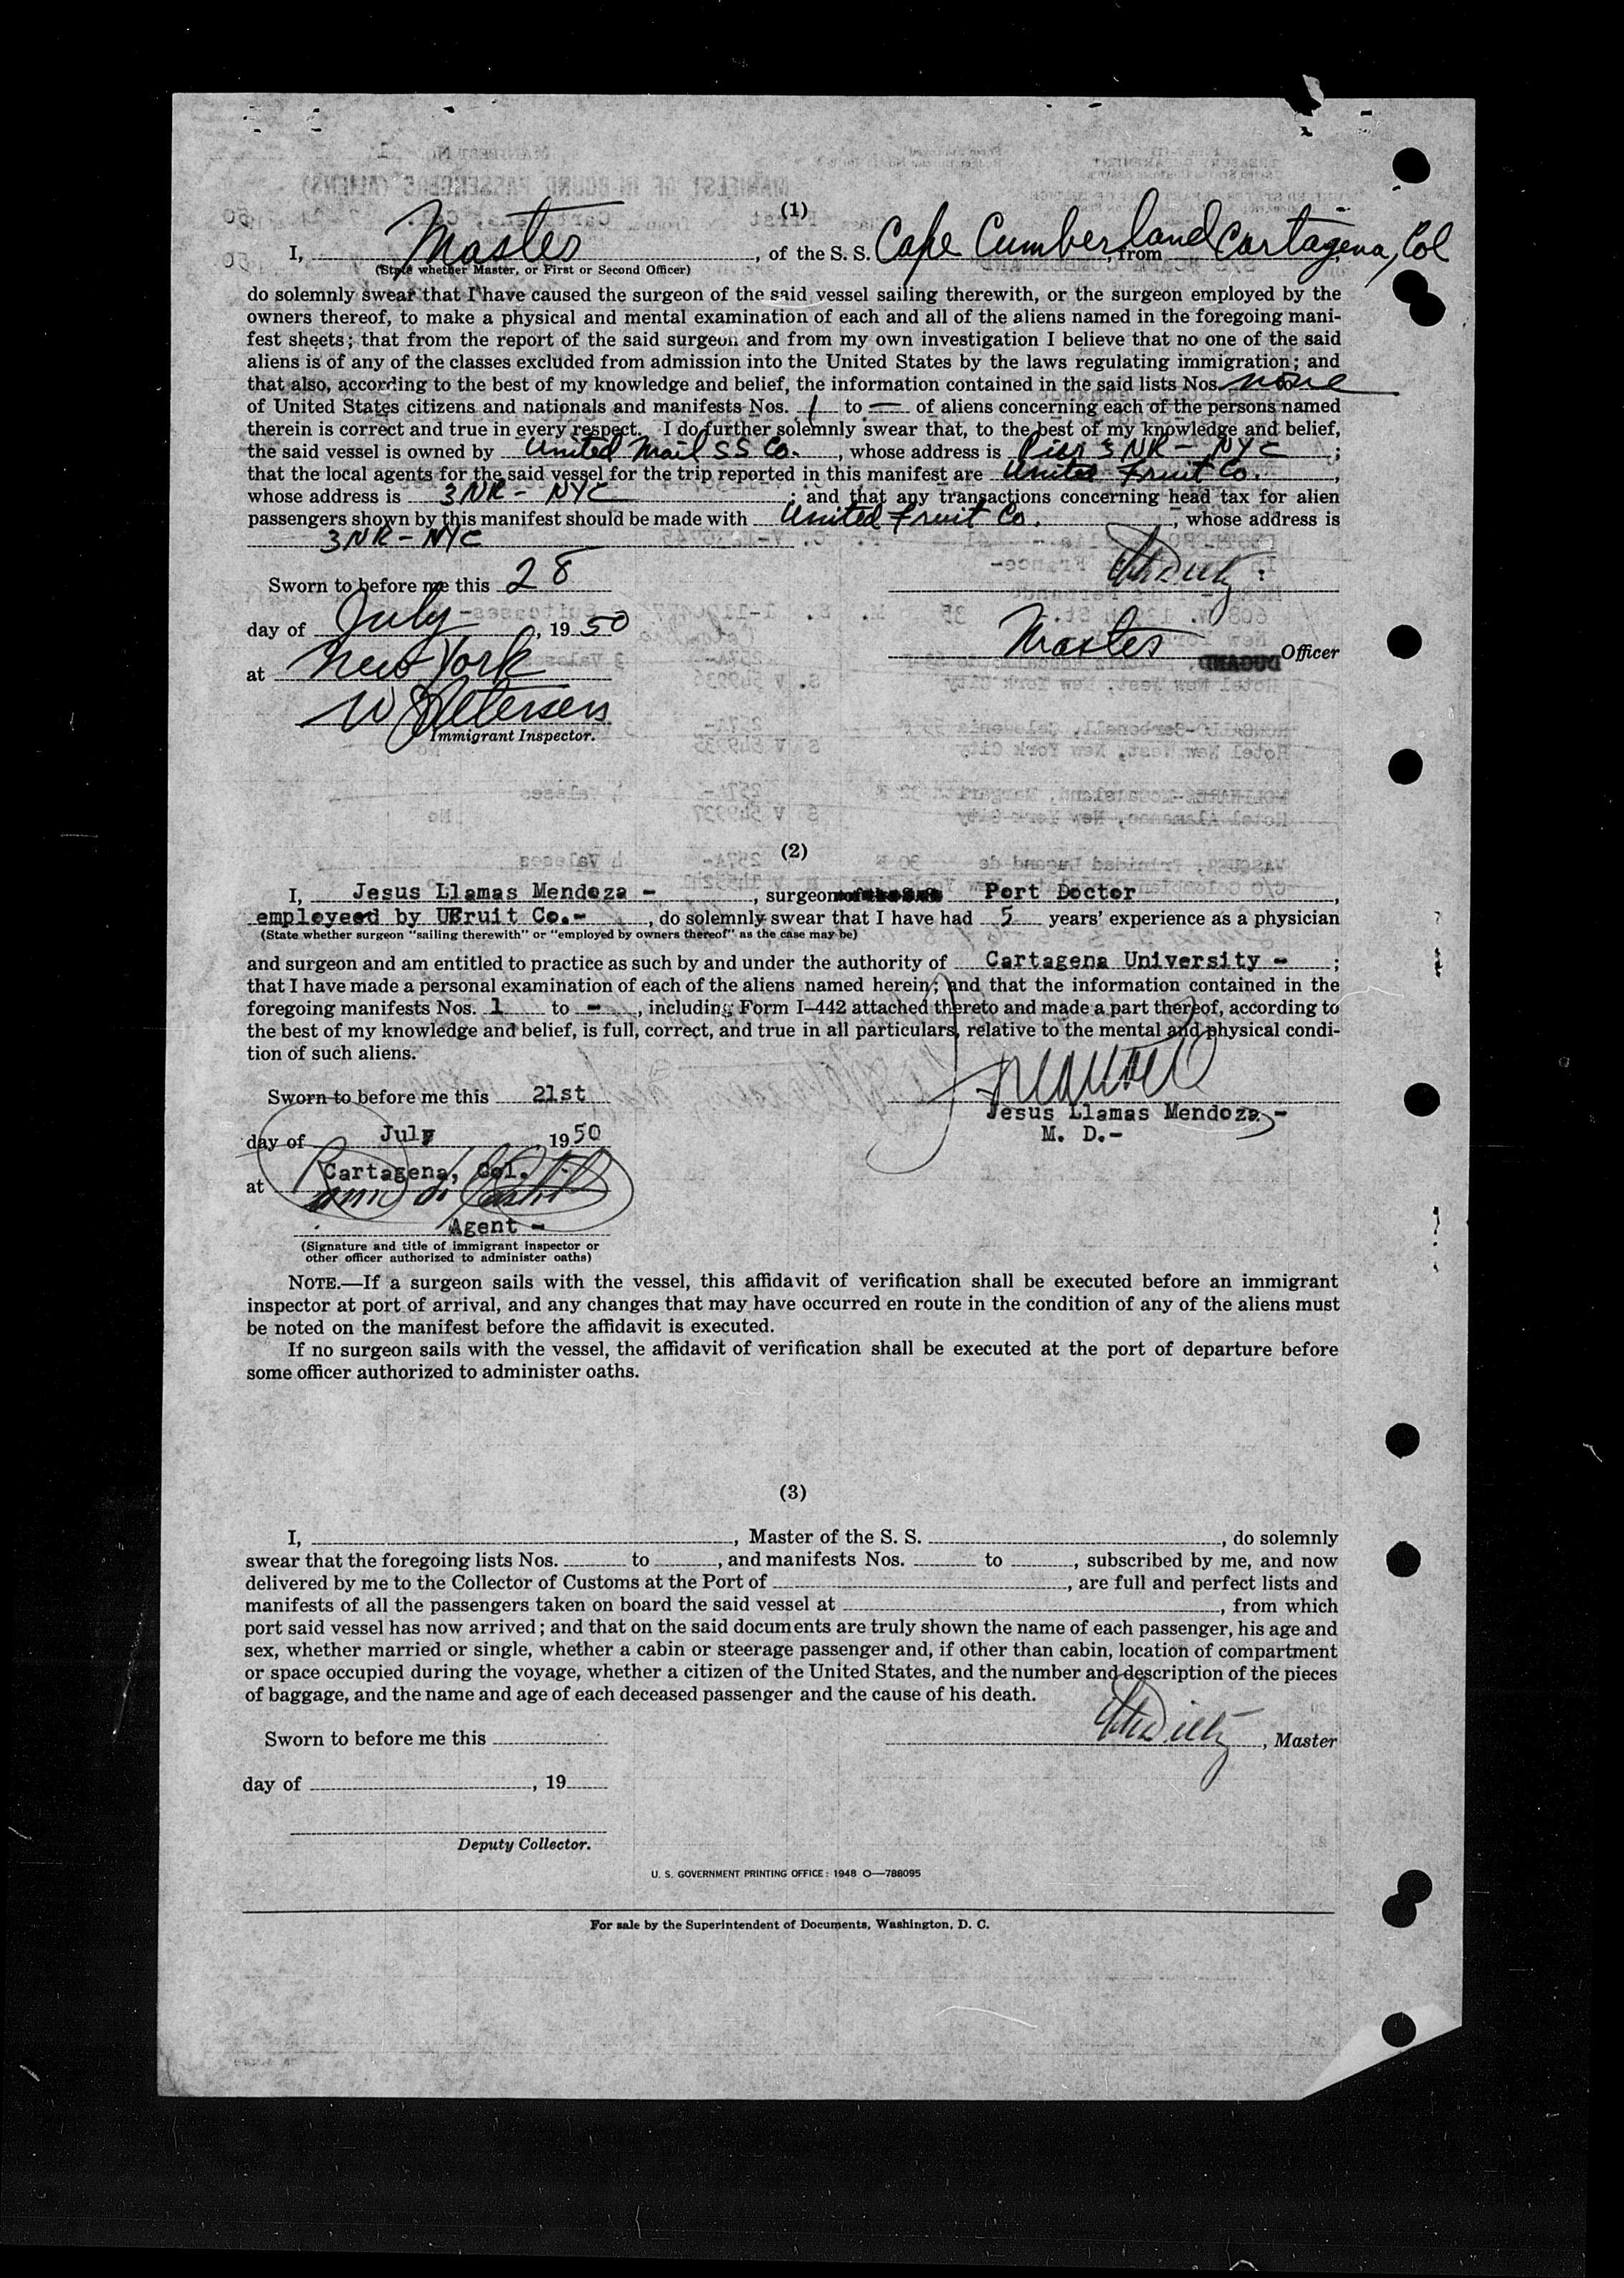 (1)
I, Master, of the S. S. Cape Cumberland, from Cartagena, Col
(State whether Master, or First or Second Officer)
do solemnly swear that I have caused the surgeon of the said vessel sailing therewith, or the surgeon employed by the
owners thereof, to make a physical and mental examination of each and all of the aliens named in the foregoing mani-
fest sheets; that from the report of the said surgeon and from my own investigation I believe that no one of the said
aliens is of any of the classes excluded from admission into the United States by the laws regulating immigration; and
that also, according to the best of my knowledge and belief, the information contained in the said lists Nos. none
of United States citizens and nationals and manifests Nos. 1 to — of aliens concerning each of the persons named
therein is correct and true in every respect. I do further solemnly swear that, to the best of my knowledge and belief,
the said vessel is owned by United Mail SS Co., whose address is Pier 3 NR - NYC;
that the local agents for the said vessel for the trip reported in this manifest are United Fruit Co.,
whose address is 3 NR - NYC; and that any transactions concerning head tax for alien
passengers shown by this manifest should be made with United Fruit Co., whose address is
3 NR - NYC
Sworn to before me this 28
day of July, 1950
Master Officer
at New York
W Petersen
Immigrant Inspector.
(2)
I, Jesus Llamas Mendoza -, surgeon of the S S Port Doctor,
employeed by UFruit Co.-, do solemnly swear that I have had 5 years' experience as a physician
(State whether surgeon "sailing therewith" or "employed by owners thereof" as the case may be)
and surgeon and am entitled to practice as such by and under the authority of Cartagena University -;
that I have made a personal examination of each of the aliens named herein; and that the information contained in the
foregoing manifests Nos. 1 to -, including Form I-442 attached thereto and made a part thereof, according to
the best of my knowledge and belief, is full, correct, and true in all particulars, relative to the mental and physical condi-
tion of such aliens.
Sworn to before me this 21st
Jesus Llamas Mendoza -
M. D.-
day of July, 1950
at Cartagena, Col.
Agent -
(Signature and title of immigrant inspector or
other officer authorized to administer oaths)
NOTE.—If a surgeon sails with the vessel, this affidavit of verification shall be executed before an immigrant
inspector at port of arrival, and any changes that may have occurred en route in the condition of any of the aliens must
be noted on the manifest before the affidavit is executed.
If no surgeon sails with the vessel, the affidavit of verification shall be executed at the port of departure before
some officer authorized to administer oaths.
(3)
I, , Master of the S. S. , do solemnly
swear that the foregoing lists Nos. to , and manifests Nos. to , subscribed by me, and now
delivered by me to the Collector of Customs at the Port of , are full and perfect lists and
manifests of all the passengers taken on board the said vessel at , from which
port said vessel has now arrived; and that on the said documents are truly shown the name of each passenger, his age and
sex, whether married or single, whether a cabin or steerage passenger and, if other than cabin, location of compartment
or space occupied during the voyage, whether a citizen of the United States, and the number and description of the pieces
of baggage, and the name and age of each deceased passenger and the cause of his death.
Sworn to before me this
, Master
day of , 19
Deputy Collector.
U. S. GOVERNMENT PRINTING OFFICE: 1948 O—788095
For sale by the Superintendent of Documents, Washington, D. C.